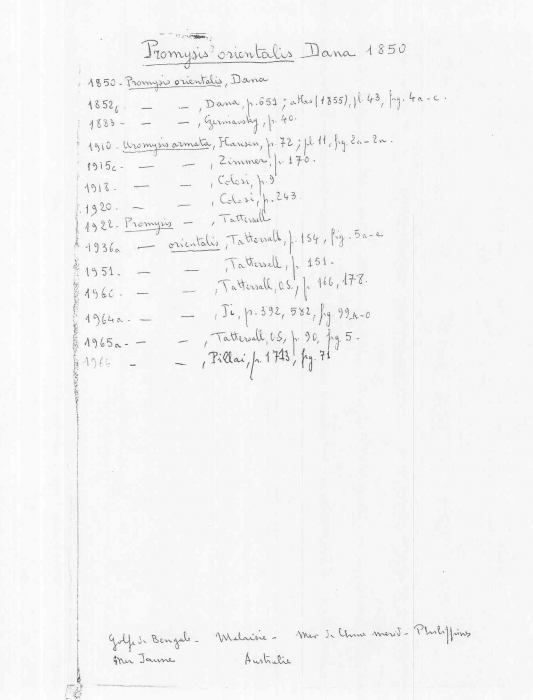 Promysis orientalis Dana 1850
1850 - Promysis orientalis, Dana
1852 — — , Dana, p. 651 ; atlas (1855), pl. 43, fig. 4a-c.
1883 - — — , Czerniavsky, p. 40.
1910 - Uromysis armata, Hansen, p. 72 ; pl 11, fig. 2a-2n.
1915c - — — , Zimmer, p. 170.
1918 - — — , Colosi, p. 9
1920 - — — , Colosi, p. 243
1922 - Promysis — , Tattersall
1936a — orientalis, Tattersall, p. 154, fig. 5a-e
1951 - — — , Tattersall, p. 151.
1960 - — — , Tattersall, O.S., p. 166, 178.
1964a - — — , Ii, p. 392, 582, fig. 99a-o
1965a - — — , Tattersall, O.S, p. 90, fig 5.
1966 - — , Pillai, p. 1713, fig. 71
Golfe de Bengale - Malaisie - Mer de Chine merid - Philippines
Mer Jaune Australie